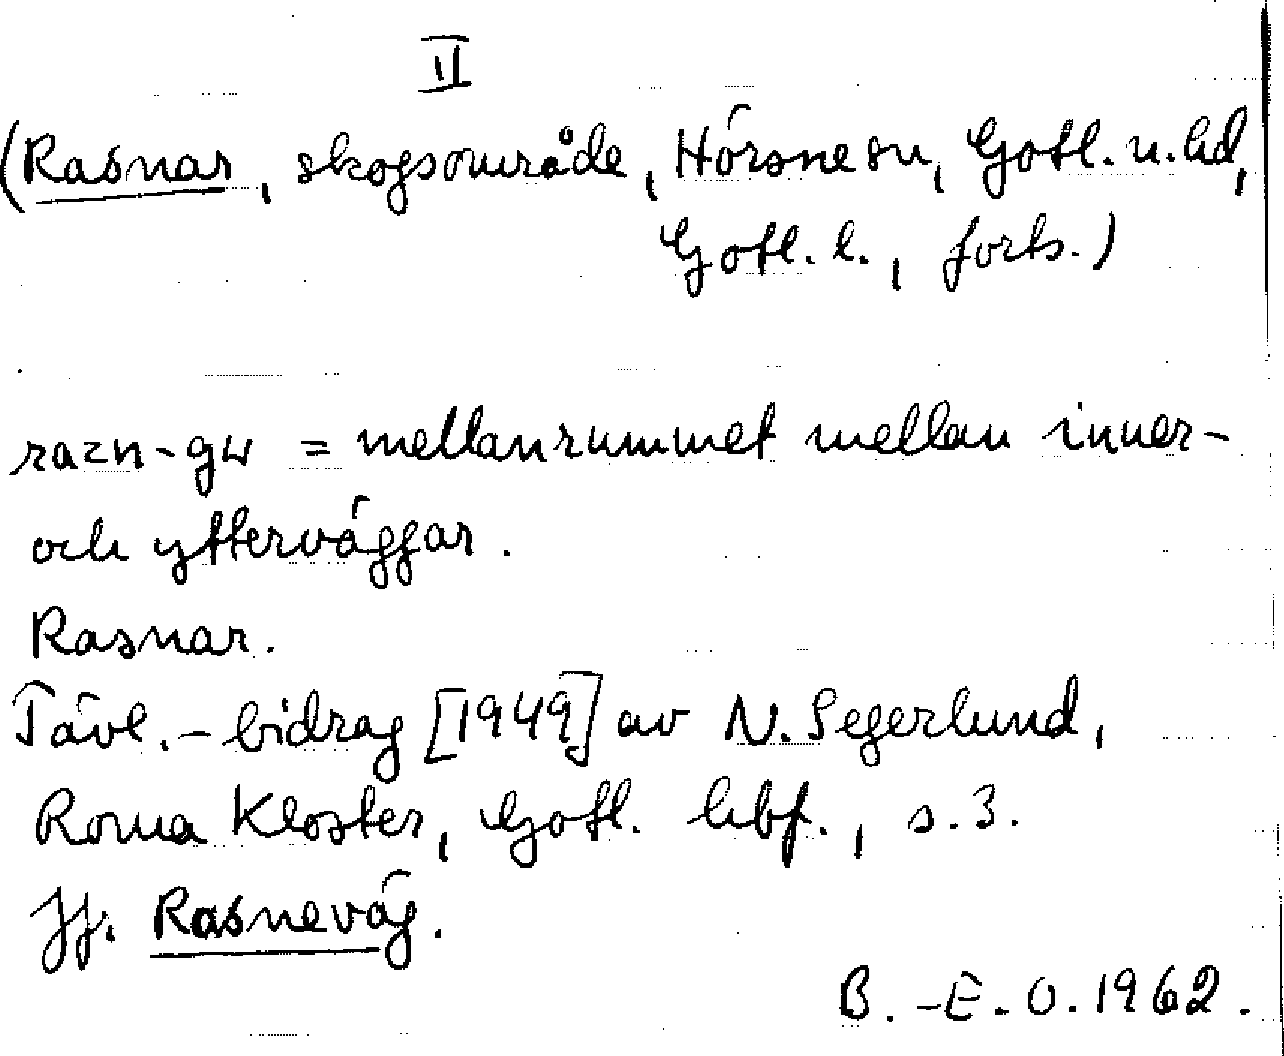 II
(Rasnar, skogsområde, Hörsne sn, Gotl. n. hd,
Gotl. l., forts.)
razn-gw = mellanrummet mellan inner-
och ytterväggar.
Rasnar.
Tävl.-bidrag [1949] av N. Segerlund,
Roma Kloster, Gotl. hbf., s. 3.
Jf. Rasneväg.
B.-E. O. 1962.